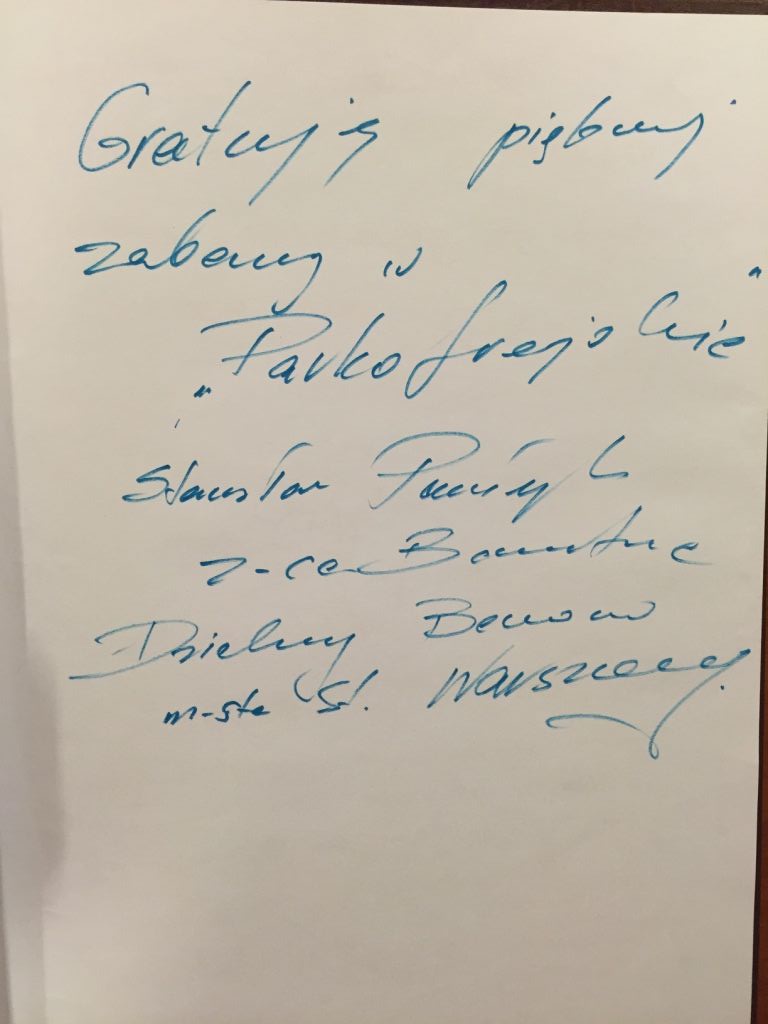 Gratuluję pięknej
zabawy w
„Parko frajdzie"
Stanisław
z-ca Burmistrza
Dzielnicy Bemowo
m-sta St. Warszawy.